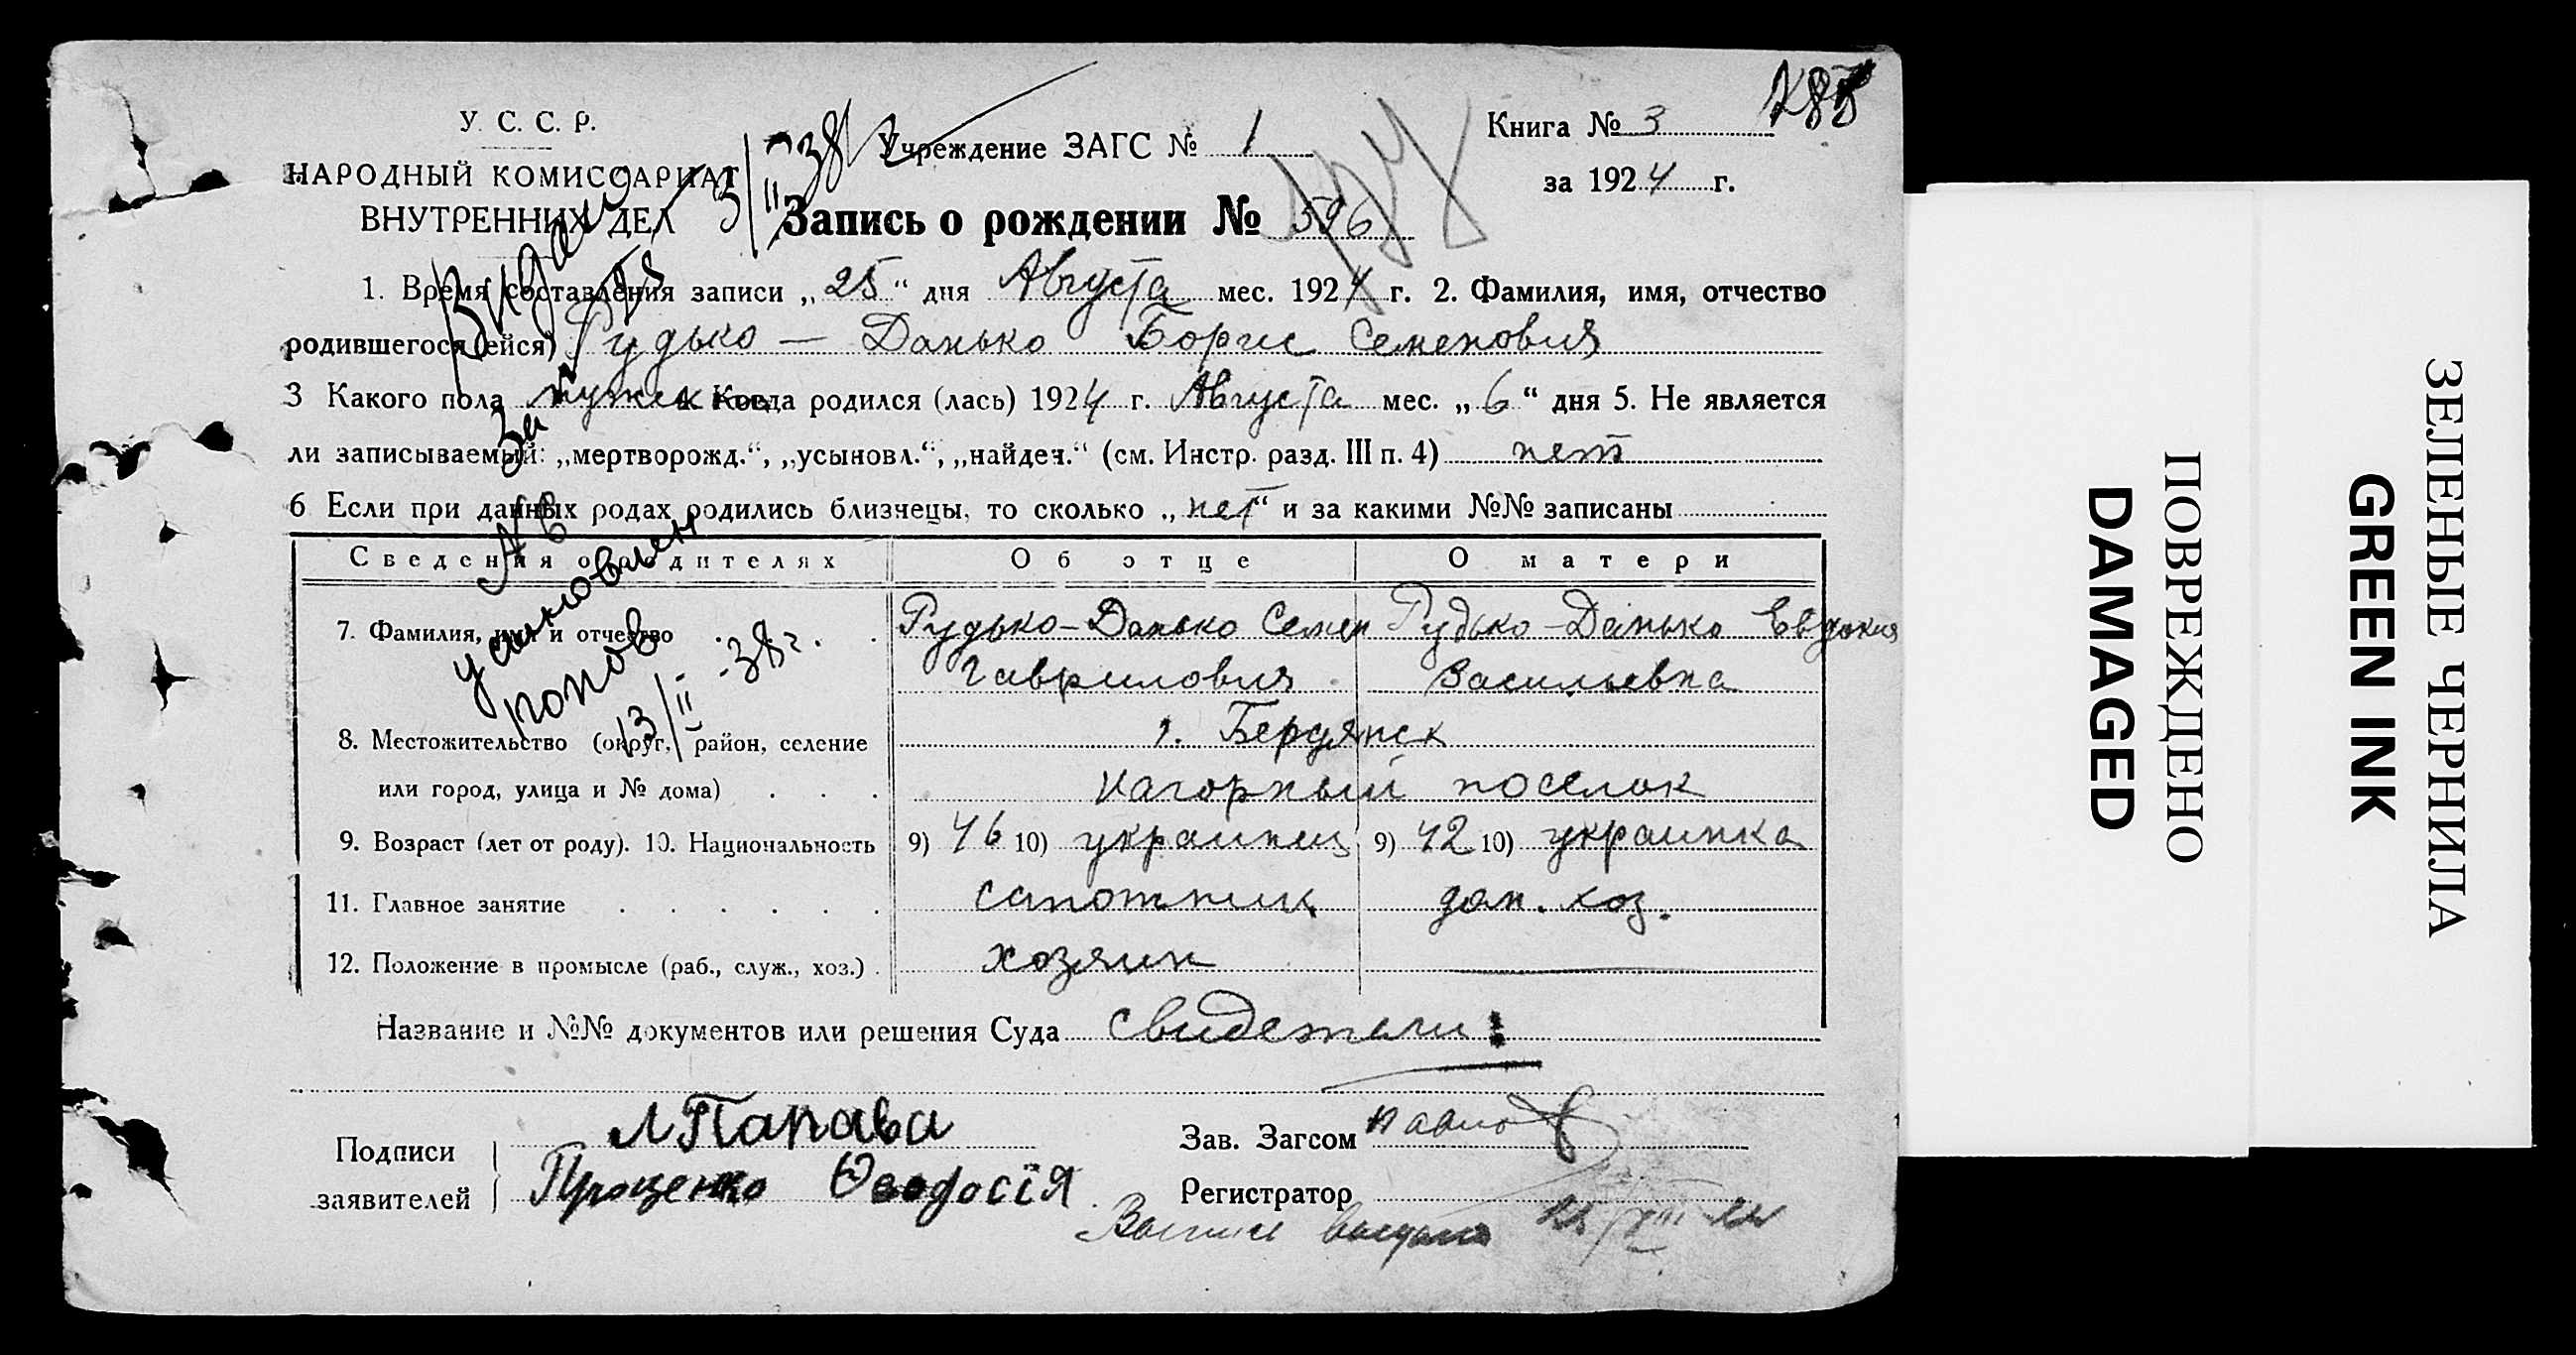 У. С. С. Р.
НАРОДНЫЙ КОМИССАРИАТ
ВНУТРЕННИХ ДЕЛ
Учреждение ЗАГС № 1
Книга № 3
за 1924 г.
Запись о рождении № 596
1. Время составления записи „25“ дня Августа мес. 1924 г. 2. Фамилия, имя, отчество
родившегося (ейся) Рудько — Данько Борис Семенович
3 Какого пола мужск 4. Когда родился (лась) 1924 г. Августа мес. „6“ дня 5. Не является
ли записываемый: „мертворожд.“, „усыновл.“, „найден.“ (см. Инстр. разд. III п. 4) нет
6 Если при данных родах родились близнецы, то сколько „нет“ и за какими №№ записаны
Сведения о родителях Об отце О матери
7. Фамилия, имя и отчество Рудько-Данько Семен Рудько-Данько Евдокия
Гаврилович Васильевна
8. Местожительство (округ, район, селение г. Бердянск
или город, улица и № дома) Нагорный поселок
9. Возраст (лет от роду). 10. Национальность 9) 46 10) украинец 9) 42 10) украинка
11. Главное занятие сапожник дом. хоз.
12. Положение в промысле (раб., служ., хоз.) хозяин
Название и №№ документов или решения Суда свидетели:
Подписи
заявителей
Л Папава
Проценко Θеодосія
Зав. Загсом Павлов
Регистратор
усыновлен
13/II-38г.
ПОВРЕЖДЕНО
DAMAGED
ЗЕЛЕНЫЕ ЧЕРНИЛА
GREEN INK